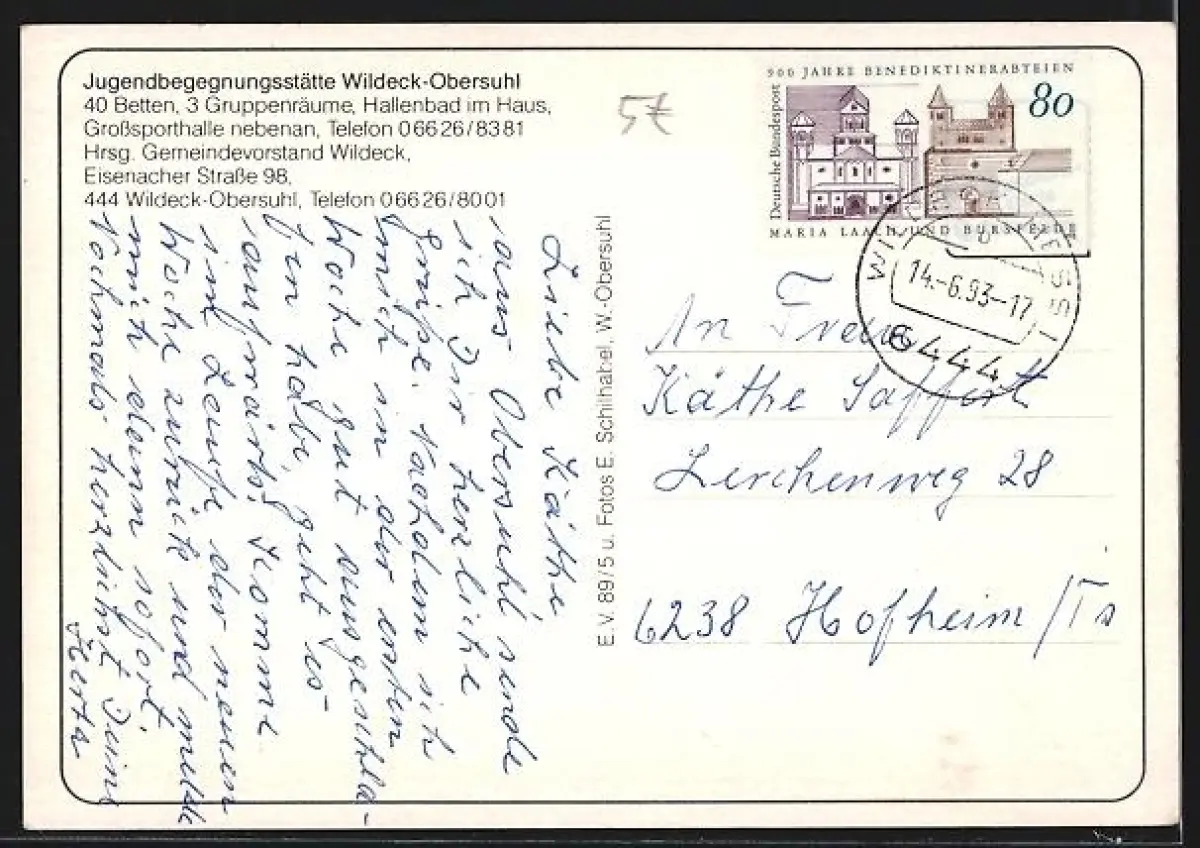 Jugendbegegnungsstätte Wildeck-Obersuhl
40 Betten, 3 Gruppenräume, Hallenbad im Haus,
Großsporthalle nebenan, Telefon 0 66 26/83 81
Hrsg. Gemeindevorstand Wildeck,
Eisenacher Straße 98,
444 Wildeck-Obersuhl, Telefon 0 66 26/80 01
5€
900 JAHRE BENEDIKTINERABTEIEN
80
Deutsche Bundespost
MARIA LAACH UND BURSFELDE
14.-6.93-17
6444
Liebe Käthe
aus Obersuhl sende
ich Dir herzliche
Grüße. Nachdem ich
mich in der ersten
Woche gut ausgeschla-
fen habe, geht es
aufwärts. Komme
im Laufe der neuen
Woche zurück und melde
mich dann sofort.
Nochmals herzlichst Deine
Herta
E.V. 89/5 u. Fotos E. Schilhabel, W.-Obersuhl
An Frau
Käthe Saffert
Lerchenweg 28
6238 Hofheim/Ts